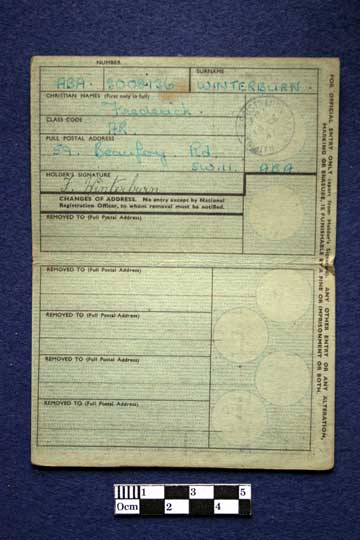 NUMBER SURNAME
ABA 8008136 WINTERBURN.
CHRISTIAN NAMES (First only in full)
Frederick.
CLASS CODE
AR
FULL POSTAL ADDRESS
59. Beaufoy Rd
SW.11. ABA
HOLDER'S SIGNATURE
F. Winterburn
CHANGES OF ADDRESS. No entry except by National
Registration Officer, to whom removal must be notified.
REMOVED TO (Full Postal Address)
REMOVED TO (Full Postal Address)
REMOVED TO (Full Postal Address)
REMOVED TO (Full Postal Address)
REMOVED TO (Full Postal Address)
FOR OFFICIAL ENTRY ONLY (apart from Holder's Signature). ANY OTHER ENTRY OR ANY ALTERATION,
MARKING OR ERASURE, IS PUNISHABLE BY A FINE OR IMPRISONMENT OR BOTH.
1 3 5
0cm 2 4